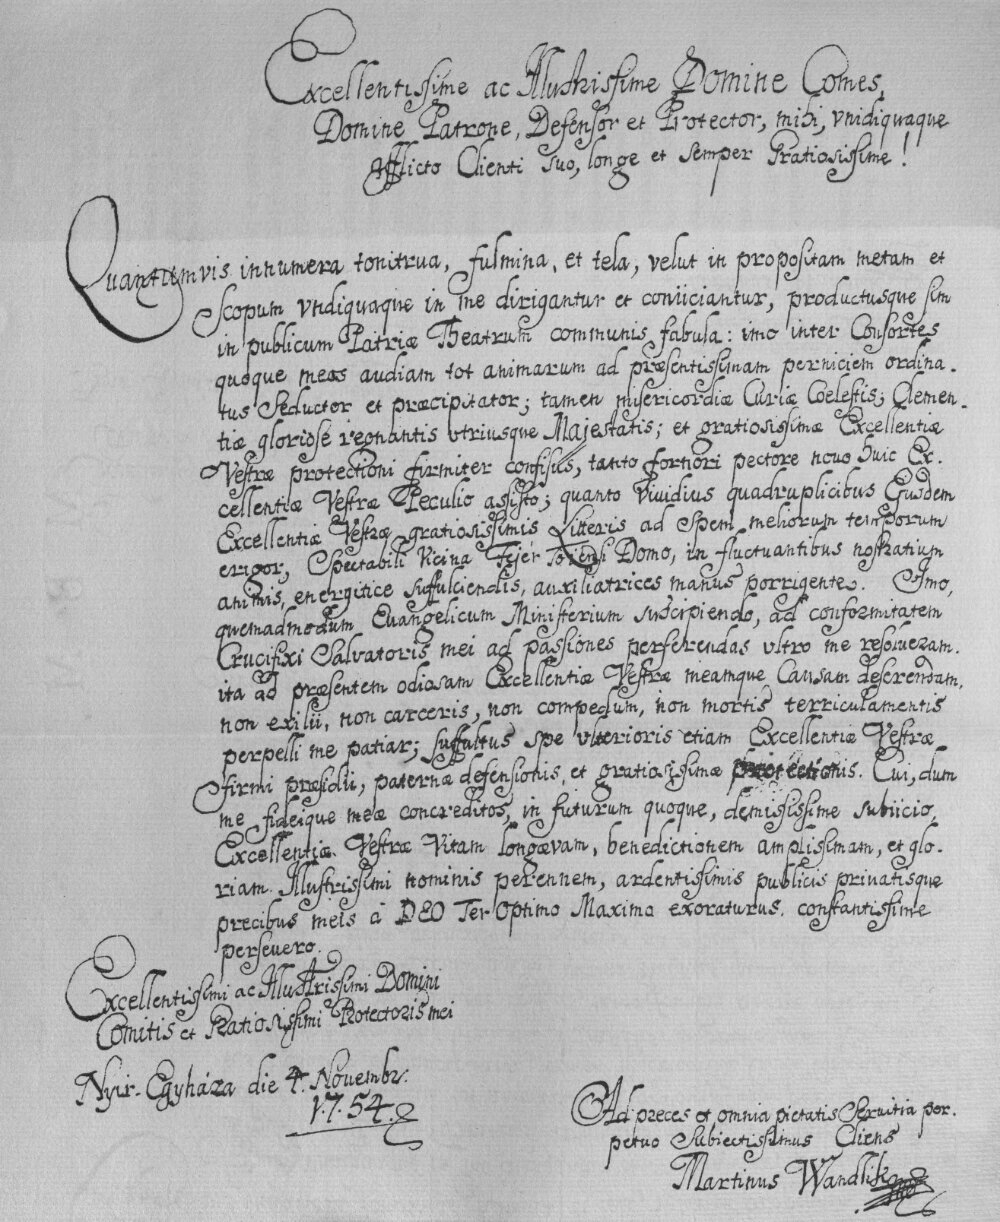 Excellentissime ac Illustrissime Domine Comes,
Domine Patrone, Defensor et Protector, mihi, vndiquaque
Afflicto Clienti suo, longe et semper Gratiosissime!
Quantumvis innumera tonitrua, fulmina, et tela, velut in propositam metam et
Scopum vndiquaque in me dirigantur et coniiciantur, productusque sim
in publicum Patriæ Theatrum communis fabula: imo inter Consortes
quoque meos audiam tot animarum ad præsentissimam perniciem ordina-
tus Seductor et præcipitator; tamen misericordiæ Curiæ Coelestis; Clemen-
tiæ gloriose regnantis vtriusque Majestatis; et gratiosissimæ Excellentiæ
Vestræ protectioni firmiter confisus, tanto fortiori pectore novo huic Ex-
cellentiæ Vestræ Peculio assisto; quanto Vividius quadruplicibus Ejusdem
Excellentiæ Vestræ gratiosissimis Litteris ad Spem meliorum temporum
erigor, Spectabili Vicina Fejér Domo, in fluctuantibus nostratium
animis, energitice suffulciendis, auxiliatrices manus porrigente. Imo,
quemadmodum Evangelicum Ministerium suscipiendo, ad conformitatem
Crucifixi Salvatoris mei ad passiones perferendas vltro me resolveram.
ita ad præsentem odiosam Excellentiæ Vestræ meamque Causam deferendam,
non exilii, non carceris, non compedum, non mortis terriculamentis
perpelli me patiar; suffultus spe vlterioris etiam Excellentiæ Vestræ
firmi præsidii, paternæ defensionis, et gratiosissimæ protectionis. Cui, dum
me fideique meæ concreditos, in futurum quoque, demississime subiicio,
Excellentiæ Vestræ Vitam longævam, benedictionem amplissimam, et glo-
riam Illustrissimi nominis perennem, ardentissimis publicis privatisque
precibus meis à DEO Ter Optimo Maximo exoraturus. constantissime
persevero.
Excellentissimi ac Illustrissimi Domini
Comitis et Gratiosissimi Protectoris mei
Nyir-Egyháza die 4. Novembr.
1.7.54.
Ad preces et omnia pietatis Servitia per-
petuo Subiectissimus Cliens
Martinus Wandlik